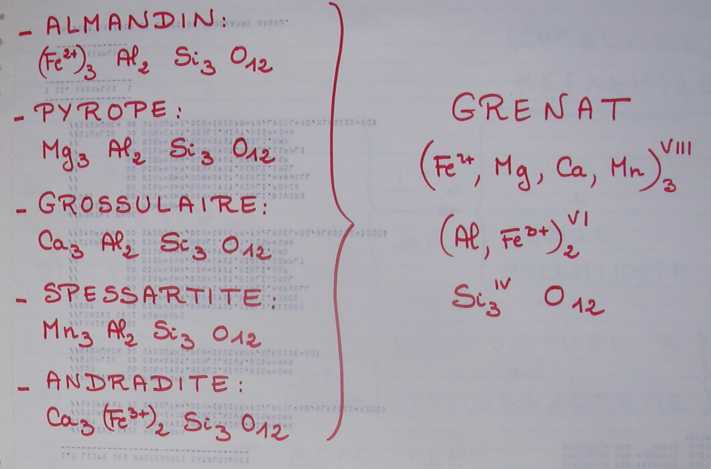 - ALMANDIN:
(Fe²⁺)₃ Al₂ Si₃ O₁₂
- PYROPE:
Mg₃ Al₂ Si₃ O₁₂
- GROSSULAIRE:
Ca₃ Al₂ Si₃ O₁₂
- SPESSARTITE:
Mn₃ Al₂ Si₃ O₁₂
- ANDRADITE:
Ca₃ (Fe³⁺)₂ Si₃ O₁₂
GRENAT
(Fe²⁺, Mg, Ca, Mn)₃^VIII
(Al, Fe³⁺)₂^VI
Si₃^IV O₁₂